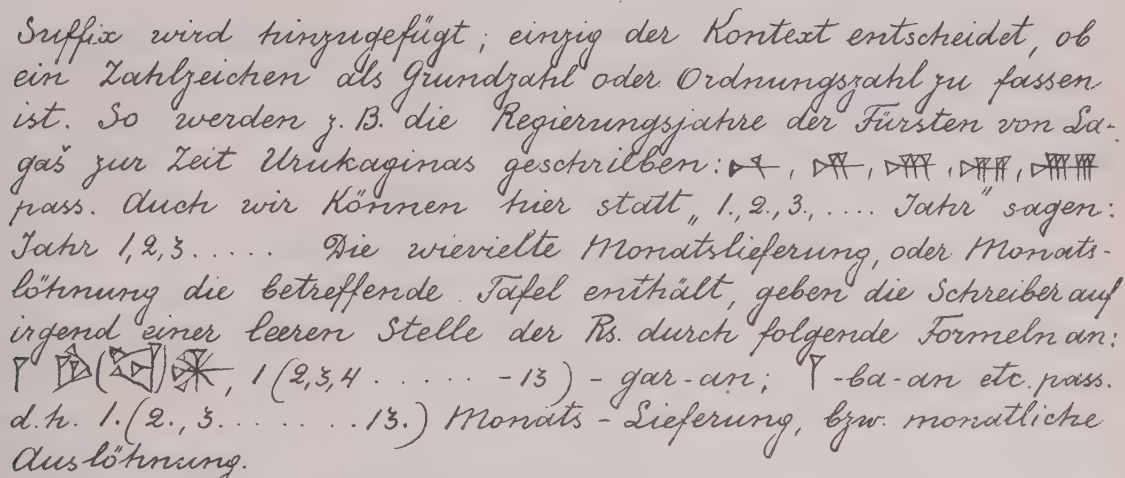 Suffix wird hinzugefügt; einzig der Kontext entscheidet, ob
ein Zahlzeichen als Grundzahl oder Ordnungszahl zu fassen
ist. So werden z. B. die Regierungsjahre der Fürsten von La-
gaš zur Zeit Urukaginas geschrieben: , , , ,
pass. Auch wir können hier statt „1., 2., 3., .... Jahr" sagen:
Jahr 1, 2, 3 ..... Die wievielte Monatslieferung, oder Monats-
löhnung die betreffende Tafel enthält, geben die Schreiber auf
irgend einer leeren Stelle der Rs. durch folgende Formeln an:
𒁹 ( ) , 1 (2, 3, 4 ...... - 13) - gar - an; 𒁹 -ba-an etc. pass.
d. h. 1. (2., 3. ....... 13.) Monats - Lieferung, bzw. monatliche
Auslöhnung.